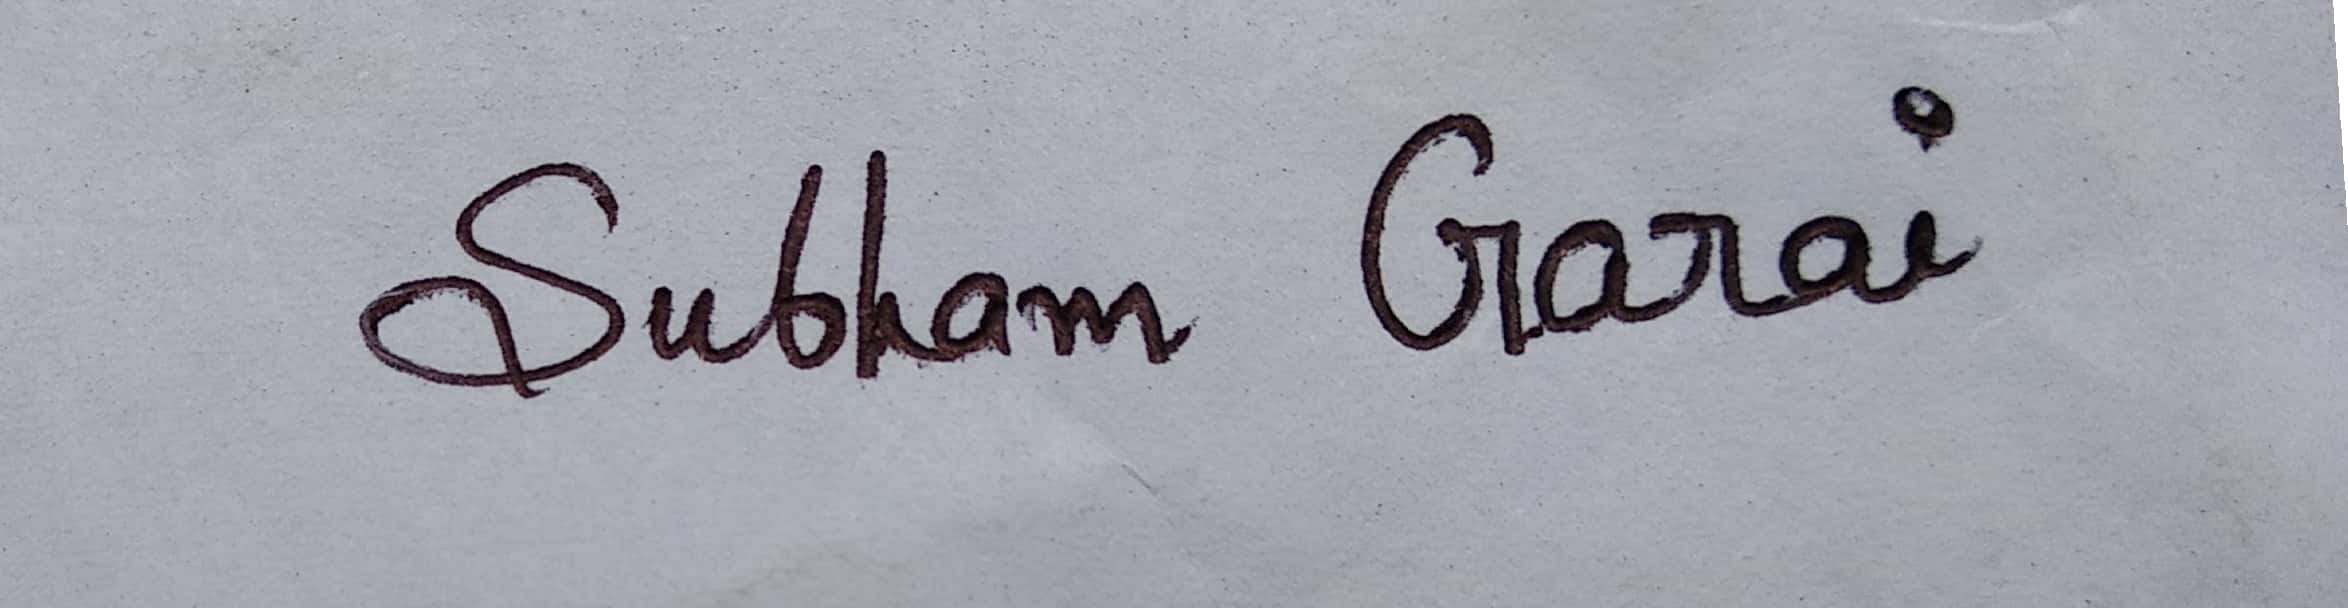 Subham Garai